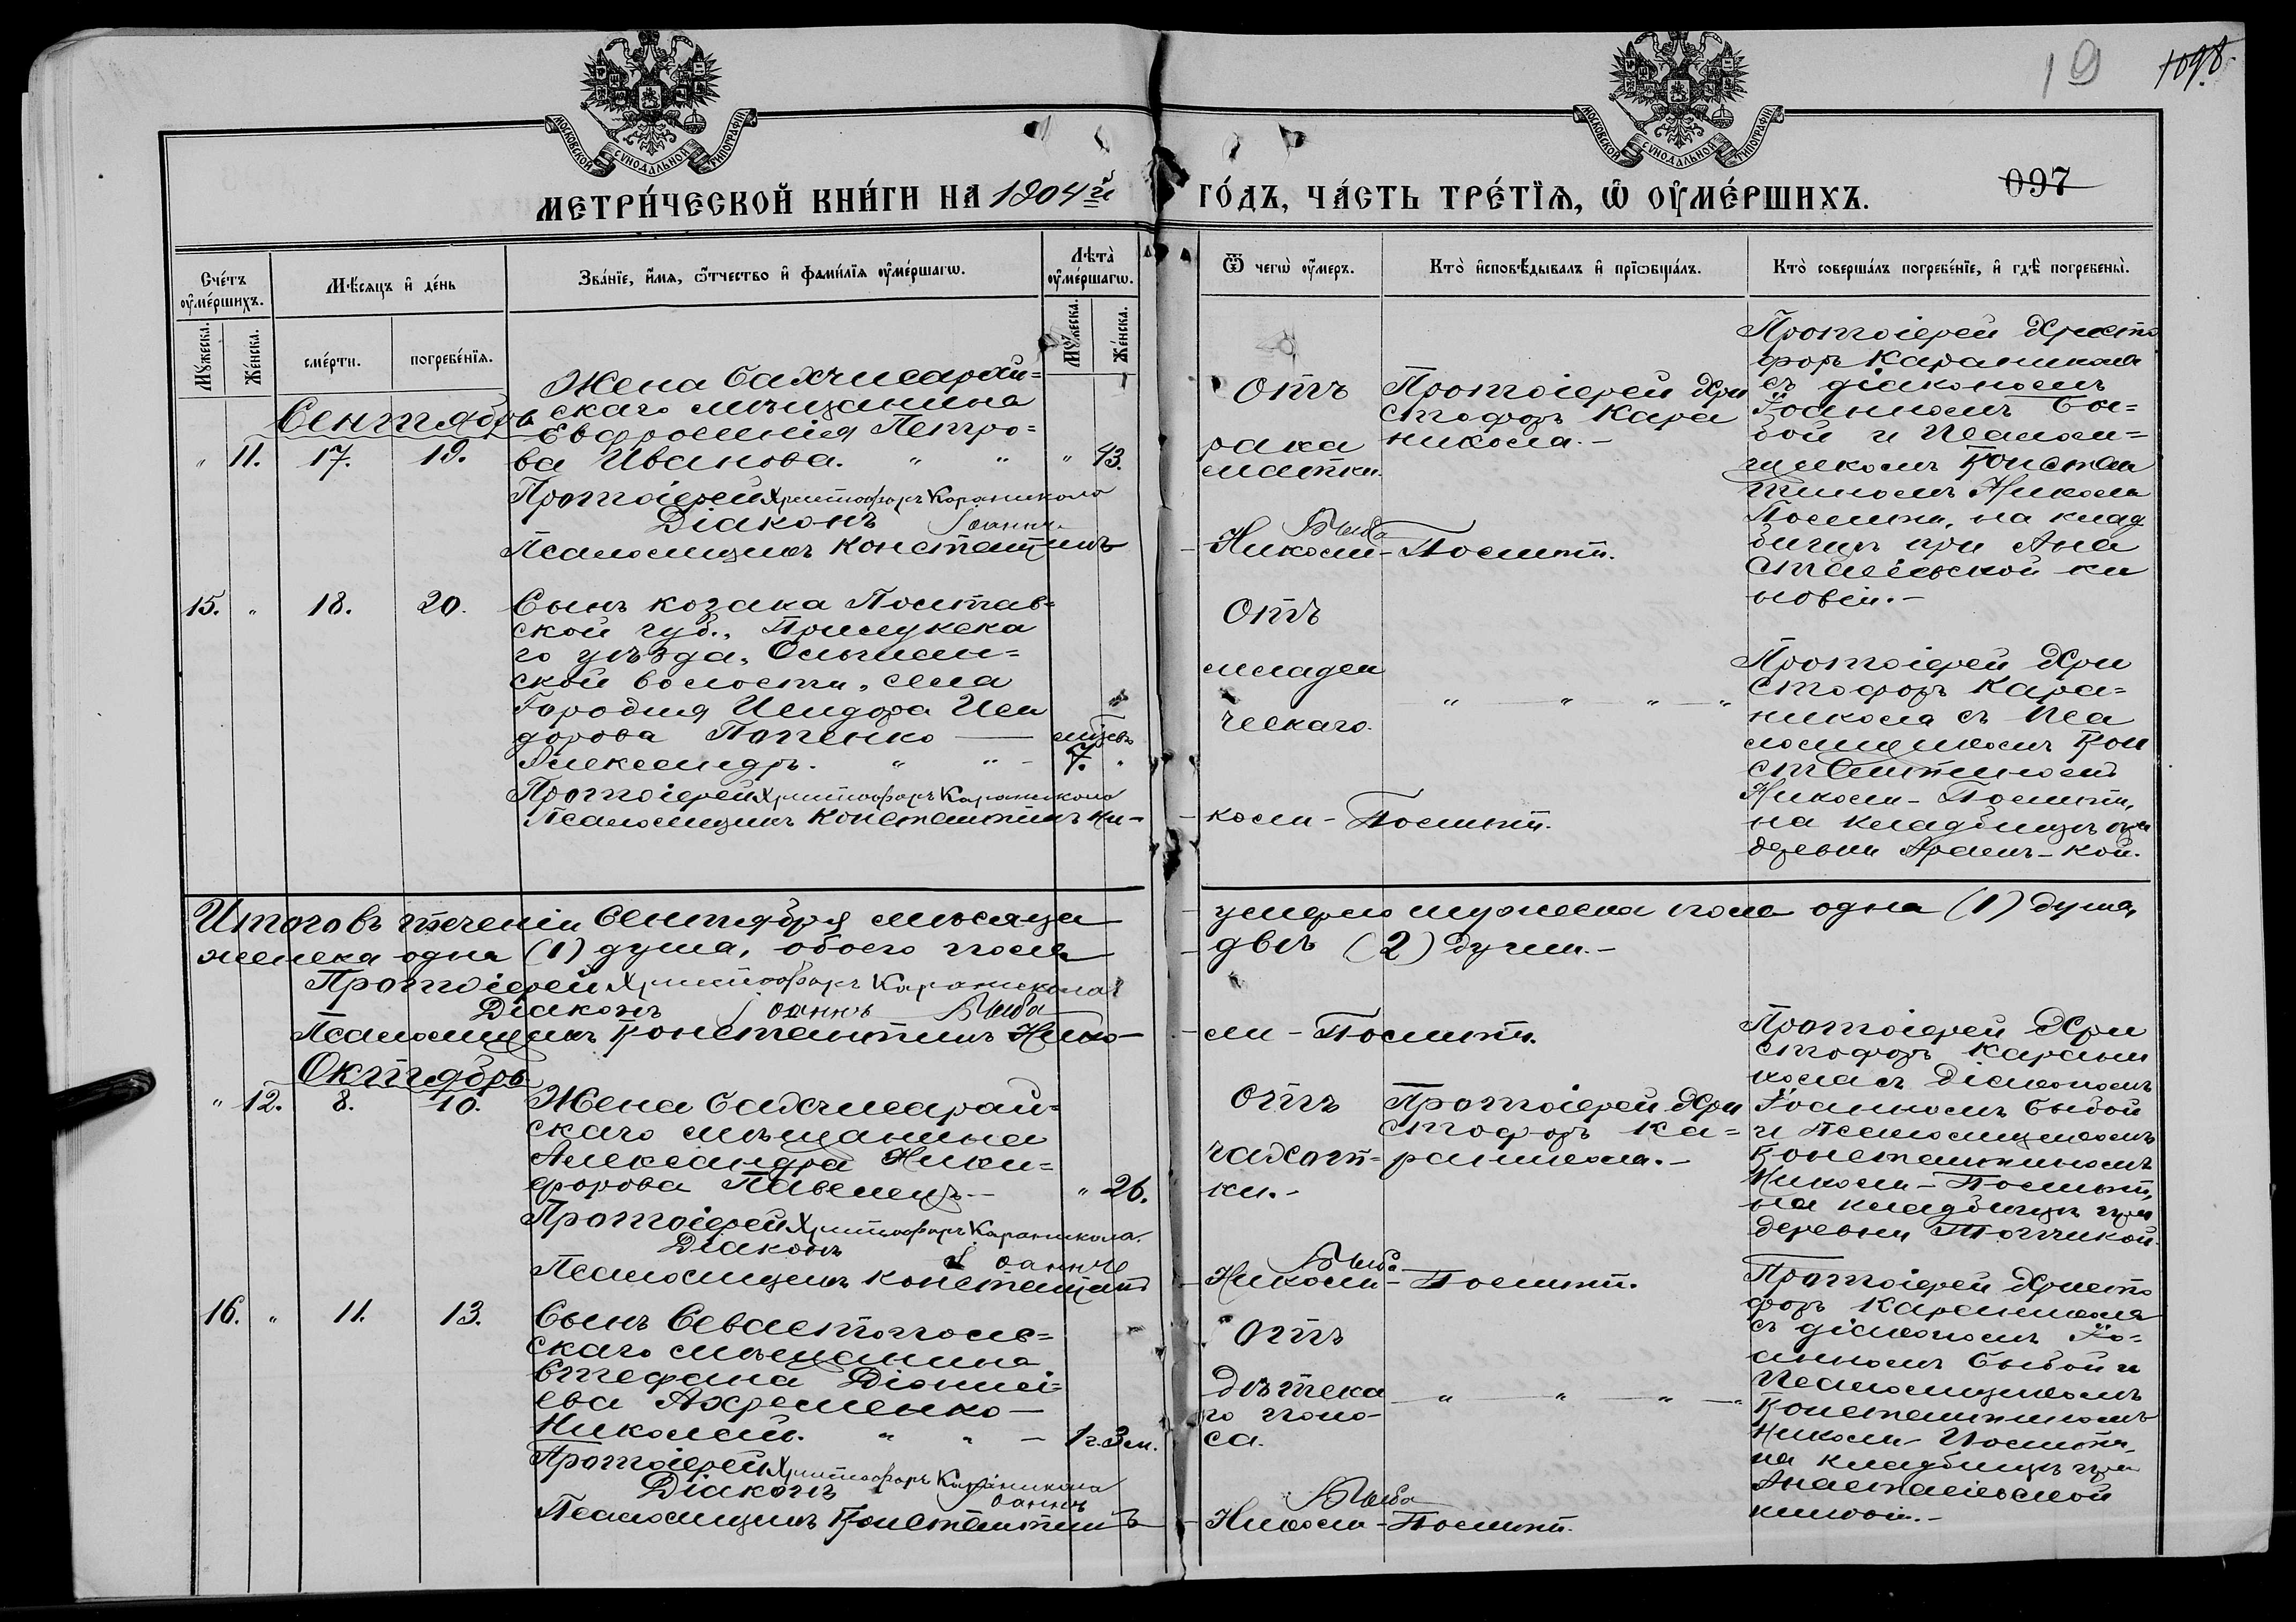 19
1098.
МОСКОВСКОЙ СѴНОДАЛЬНОЙ ТИПОГРАФІИ
МОСКОВСКОЙ СѴНОДАЛЬНОЙ ТИПОГРАФІИ
097
МЕТРИ́ЧЕСКОЙ КНИ́ГИ НА 1904й
ГО́ДЪ, ЧА́СТЬ ТРЕ́ТЇѦ, Ѡ ОУМЕ́РШИХЪ.
Сче́тъ оуме́ршихъ.
Мꙋ́жеска.
Же́нска.
Мѣ́сяцъ и де́нь
сме́рти.
погребе́нїя.
Зва́нїе, и́мя, ѻ́тчество и фами́лїя оуме́ршагѡ.
Лѣта̀ оуме́ршагѡ.
Мꙋ́жеска.
Же́нска.
Ѿ чегѡ̀ оу́меръ.
Кто̀ исповѣ́дывалъ и прїѡбща́лъ.
Кто̀ соверша́лъ погребе́нїе, и гдѣ̀ погребены̀.
Сентябрь
" 11. 17. 19.
Жена Бахчисарай=
скаго мѣщанина
Евфросинія Петро=
ва Иванова. " "
" 43.
Протоіерей Христофоръ Караникола
Діаконъ Іоаннъ
Псаломщикъ Константинъ
отъ
рака
матки.
Протоіерей Хри
стофоръ Кара
никола.-
Быба
Николи-Посмитъ.
Протоіерей Христо
форъ Караникола
съ діакономъ
Іоанномъ Бы=
бой и Псалом=
щикомъ Констан
тиномъ Николи
Посмитъ, на клад
бищѣ при Ана
стасіевской ки
новіи.-
15. " 18. 20.
Сынъ козака Полтав=
ской губ., Прилукска
го уѣзда, Ольшан=
ской волости, села
Городня Исидора Иси
дорова Потенко —
Александръ. " " -
мѣсяц.
7. "
Протоіерей Христофоръ Караникола
Псаломщикъ Константинъ Ни-
отъ
младен
ческаго.
" — " — " — "
коли-Посмитъ.
Протоіерей Хри
стофоръ Кара=
никола съ Пса
ломщикомъ Кон
стантиномъ
Николи-Посмитъ,
на кладбищѣ при
деревни
Итого въ теченіи Сентября мѣсяца
умерло мужеска пола одна (1) душа,
женска одна (1) душа, обоего пола
двѣ (2) души.-
Протоіерей Христофоръ Караникола
Діаконъ Іоаннъ Быба
Псаломщикъ Константинъ Нико-
ли-Посмитъ.
Октябрь
" 12. 8. 10.
Жена Бахчисарай=
скаго мѣщанина
Александра Ники=
форова Павелецъ.-
" 26.
Протоіерей Христофоръ Караникола.
Діаконъ Іоаннъ
Псаломщикъ Константинъ
отъ
чахот=
ки.-
Протоіерей Хри
стофоръ Ка=
раникола.-
Быба
Николи-Посмитъ.
Протоіерей Хри
стофоръ Карани
кола съ Діакономъ
Іоанномъ Быбой
и Псаломщикомъ
Константиномъ
Николи-Посмитъ,
на кладбищѣ при
деревни Топчикой.
16. " 11. 13.
Сынъ Севастополь=
скаго мѣщанина
Стефана Діонисі=
ева Ахременко —
Николай. " " -
1 г. 3 м.
Протоіерей Христофоръ Караникола
Діаконъ Іоаннъ
Псаломщикъ Константинъ
отъ
Дѣтска
го поно-
са.
" — " — " — "
Быба
Николи-Посмитъ.
Протоіерей Христо
форъ Караникола
съ діакономъ Іо=
анномъ Быбой и
Псаломщикомъ
Константиномъ
Николи-Посмитъ,
на кладбищѣ при
Анастасіевской
киновіи.-